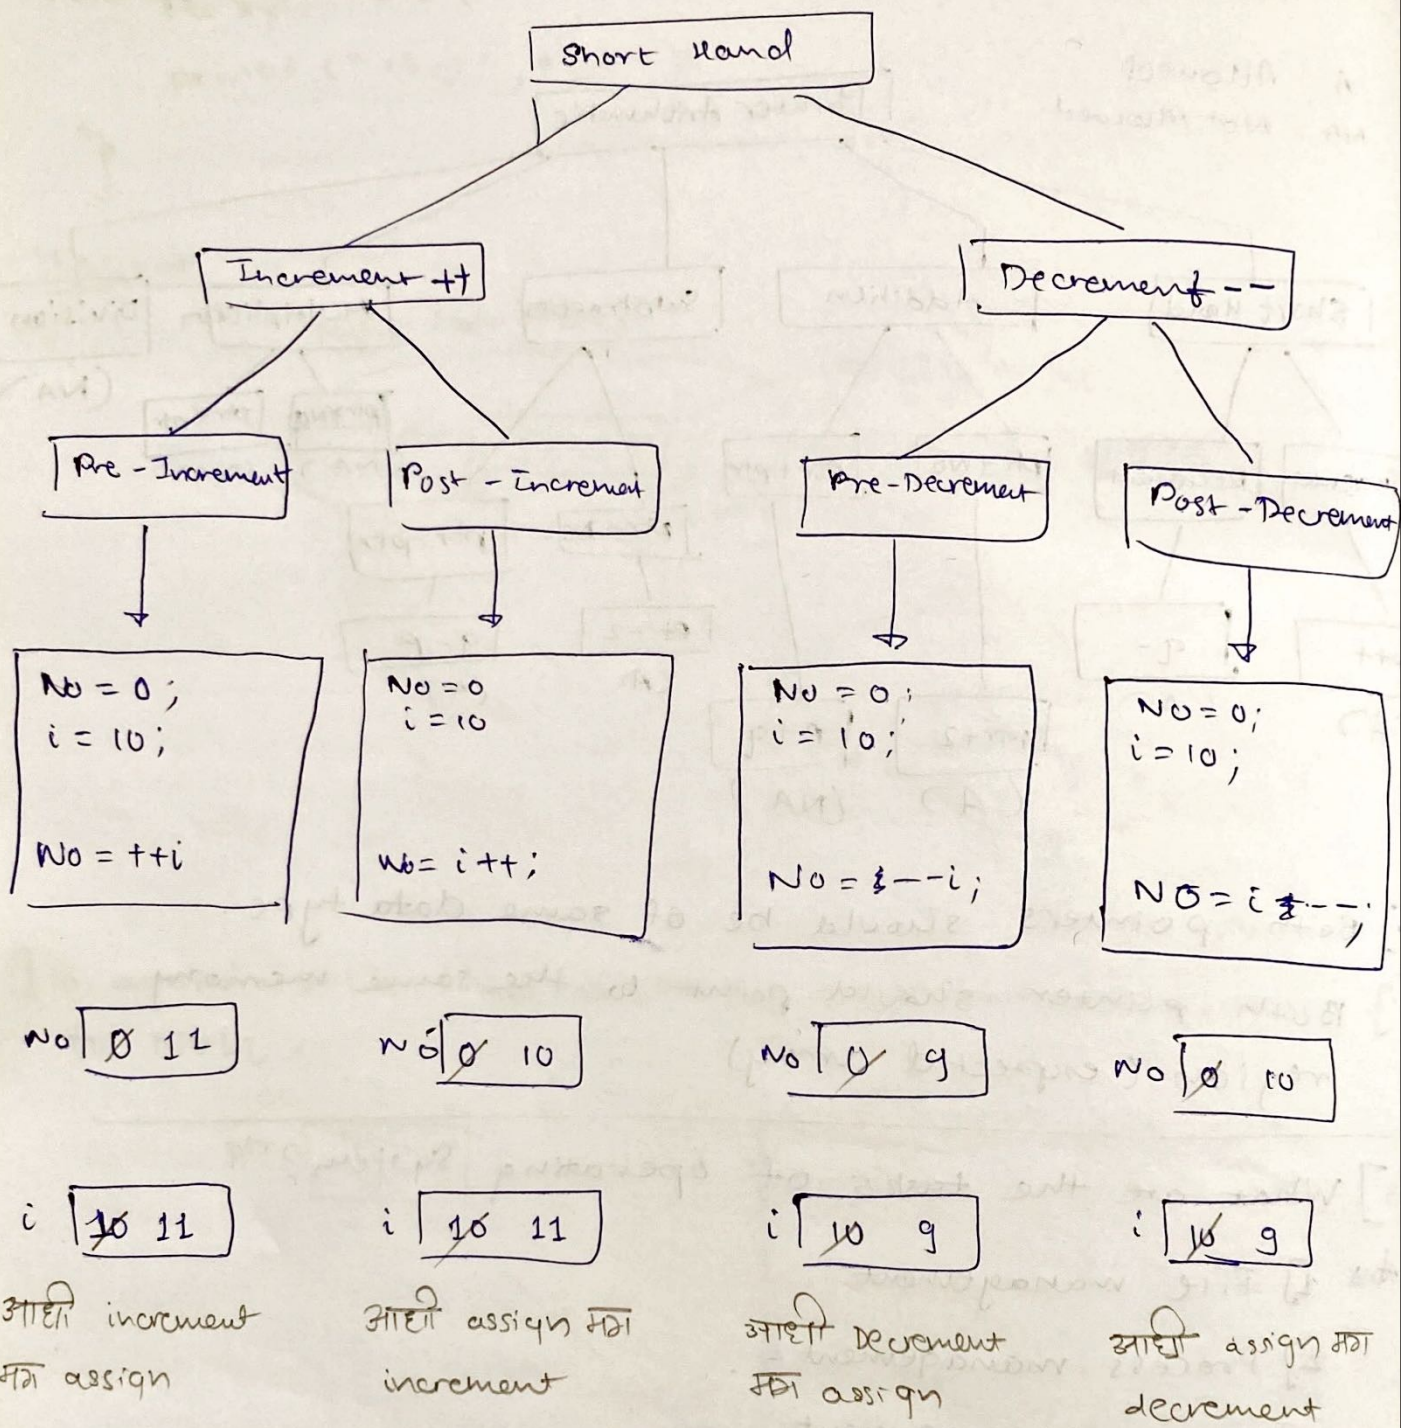 Short Hand
Increment ++
Decrement --
Pre - Increment
Post - Increment
Pre - Decrement
Post - Decrement
No = 0 ;
i = 10 ;
No = ++i
No = 0
i = 10
No = i ++ ;
No = 0 ;
i = 10 ;
No = --i ;
No = 0 ;
i = 10 ;
No = i -- ;
No 0 11
No 0 10
No 0 9
No 0 10
i 10 11
i 10 11
i 10 9
i 10 9
आधी increment
मग assign
आधी assign मग
increment
आधी Decrement
मग assign
आधी assign मग
decrement